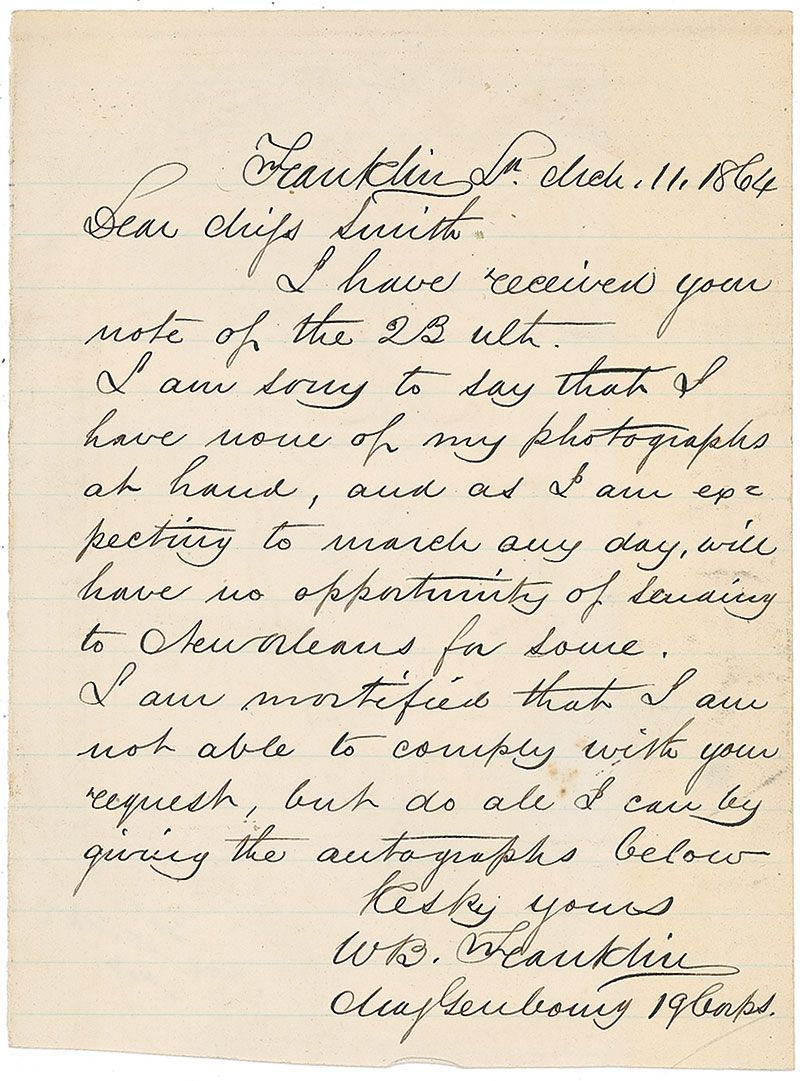 Franklin La. Mch. 11. 1864
Dear Miss Smith
I have received your
note of the 23 ult.
I am sorry to say that I
have none of my photographs
at hand, and as I am ex=
pecting to march any day, will
have no opportunity of sending
to New Orleans for some.
I am mortified that I am
not able to comply with your
request, but do all I can by
giving the autographs below
Resky yours
WB. Franklin
Maj Gen Comg 19 Corps.